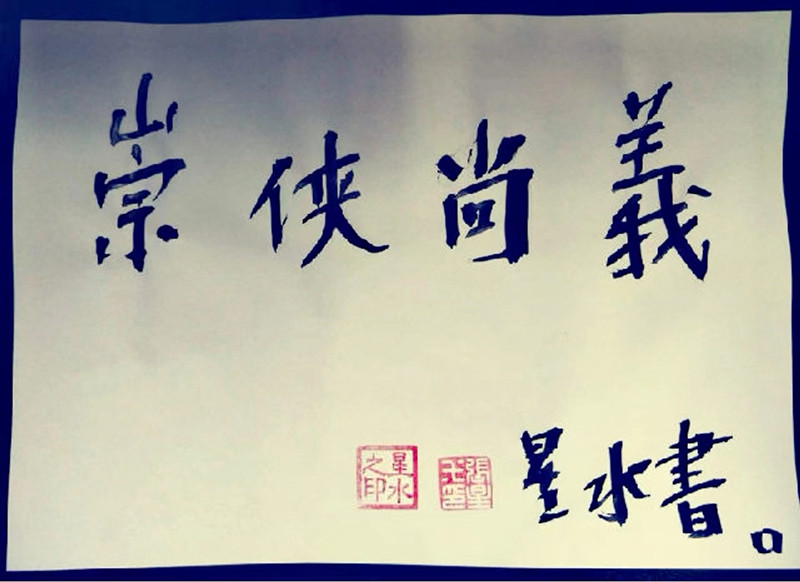 崇侠尚義
星水書。
星水之印